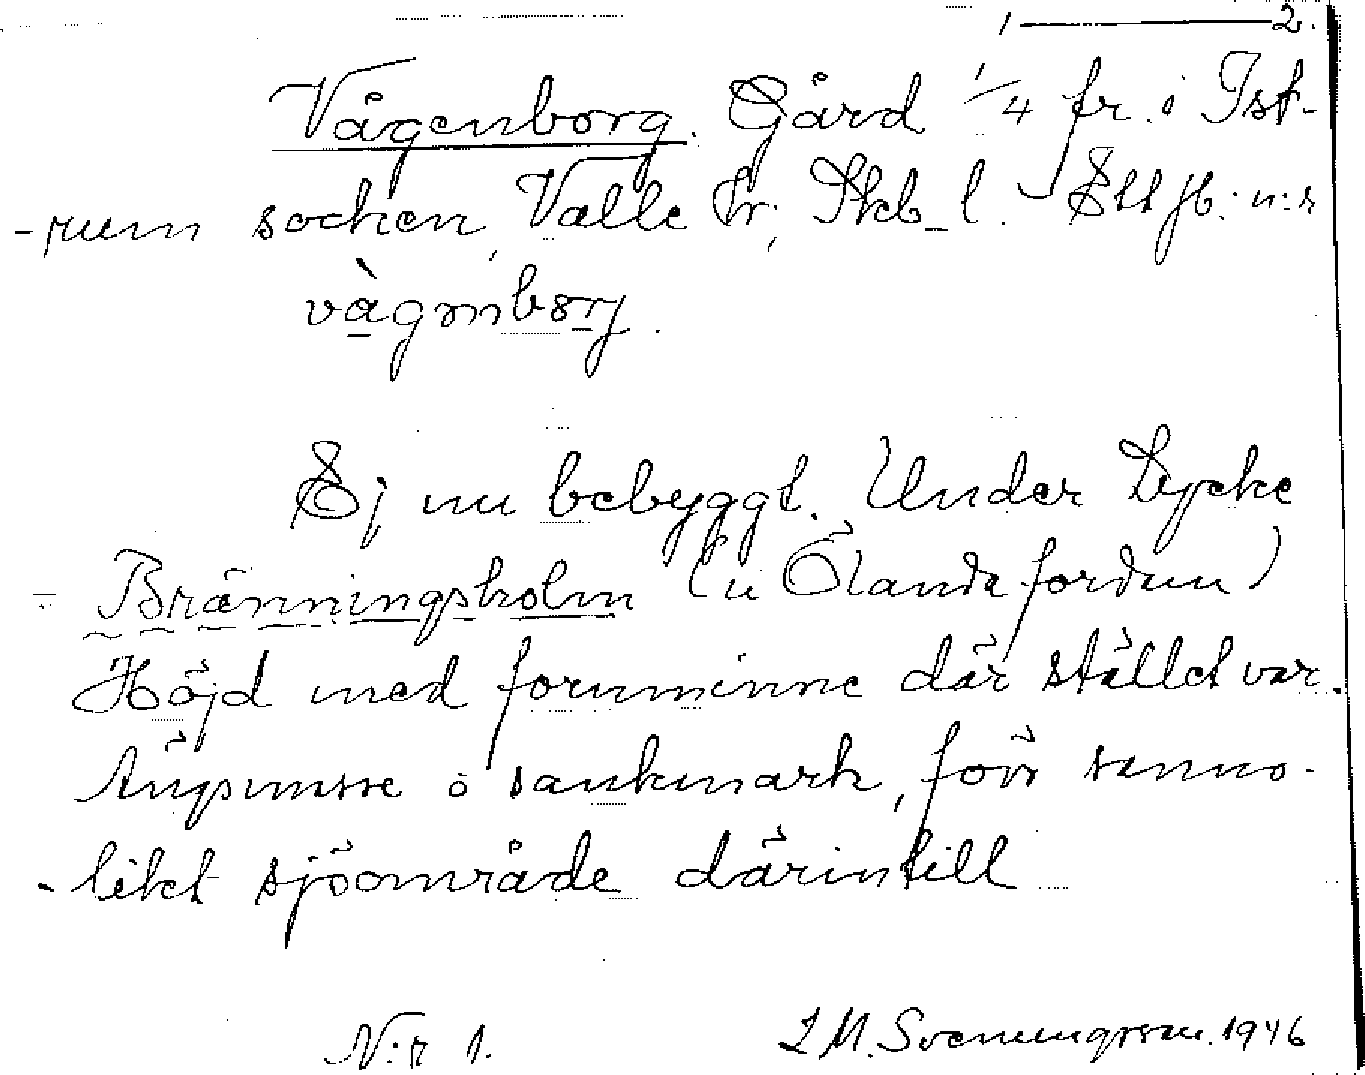 1 — 2.
Vågenborg. Gård 1/4 fr. i Ist-
-rum socken, Valle hr, Skb. l. Ett jb. n:r
vàgmborg.
Ej nu bebyggt. Under Lycke
= Bränningsholm (u Ölanda fordum)
Höjd med fornminne där stället var.
Ängsmosse o sankmark, förr sanno-
-likt sjöområde därintill
N:r 1. L M. Svenungsson. 1946